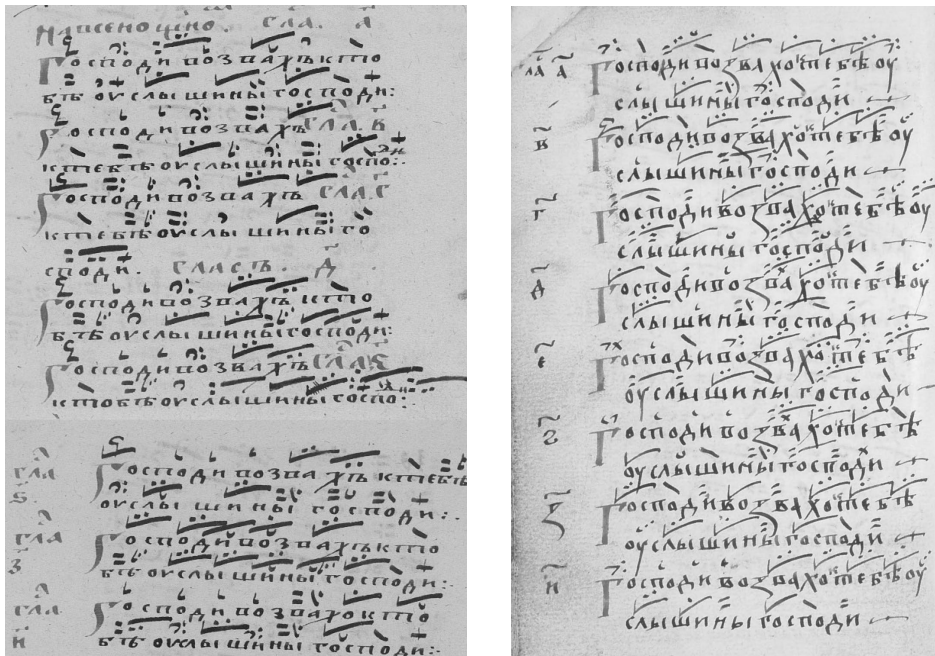 На всенощно. гла. а҃
Господи возвахъ к то
бѣ оуслышины господи:
Господи возвахъ гла. в
к тебѣ оуслышины госпо:
Господи возвахъ гла. г
к тебѣ оуслышины го
споди. гласъ. д҃
Господи возвахъ к то
бѣ оуслышины господи:
Господи возвахъ гла. є
к тобѣ оуслышины госпо:
гла ѕ. Господи возвахъ к тебѣ
оуслышины господи:
гла з Господи возвахъ к то
бѣ оуслышины господи:
гла и Господи возвахо к то
бѣ оуслышины господи:
гла а҃ Господи возвахо тебѣ оу
слышины господи
в҃ Господи возвахо тебѣ оу
слышины господи
г҃ Господи возвахо тебѣ оу
слышины господи
д҃ Господи возвахо тебѣ оу
слышины господи
е҃ Господи возвахо тебѣ
оуслышины господи
ѕ҃ Господи возвахо тебѣ
оуслышины господи
з҃ Господи возвахо тебѣ
оуслышины господи
и҃ Господи возвахо тебѣ оу
слышины господи